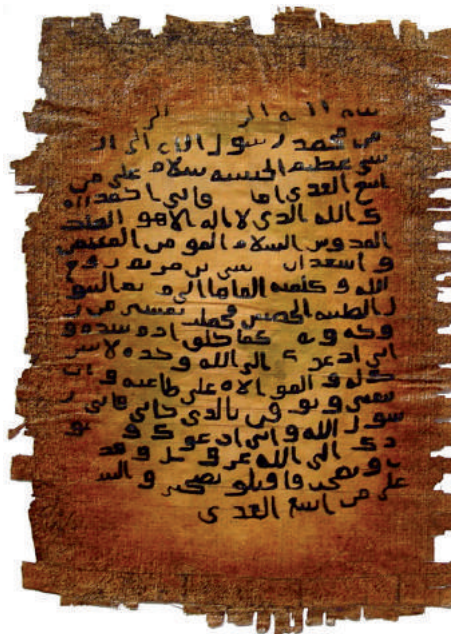 بسم الله الر الر
من محمد رسول الله الى ال
شي عظيم الحبشة سلام على من
اتبع الهدى اما فاني احمد
ك الله الذي لا اله الا هو الملك
القدوس السلام المومن المهيمن
و اشهد ان سى بن مريم روح
الله و كلمته القاها الى مريم البتو
ل الطيبة الحصينة فحملت بعيسى من ر
وحه و كما خلق ادم بيده و
اني ادعو ك الى الله وحده لا شر
ك له و الموالاه على طاعته و ان
تتبعني و توقن بالذي جاني فاني ر
سول الله و اني ادعو ك و
دك الى الله عز و جل و قد
و نصحت فاقبلو نصحي و الس
على من اتبع الهدى